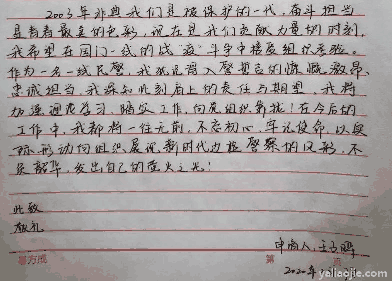 2003年非典我们是被保护的一代，奋斗担当
是青春最美的色彩，现在是我们贡献力量的时刻，
我希望在国门一线的战“疫”斗争中接受组织考验。
作为一名一线民警，我犹记得入警誓言的慷慨激昂、
忠诚担当，我深知此刻肩上的责任与期望，我将
加强理论学习、踏实工作，向党组织靠拢！在今后的
工作中，我都将一往无前，不忘初心、牢记使命，以实
际行动向组织展现新时代边检警察的风彩，不
负韶华，发出自己的萤火之光！
此致
敬礼
申请人：王
2020年
第
yaliaojie.com